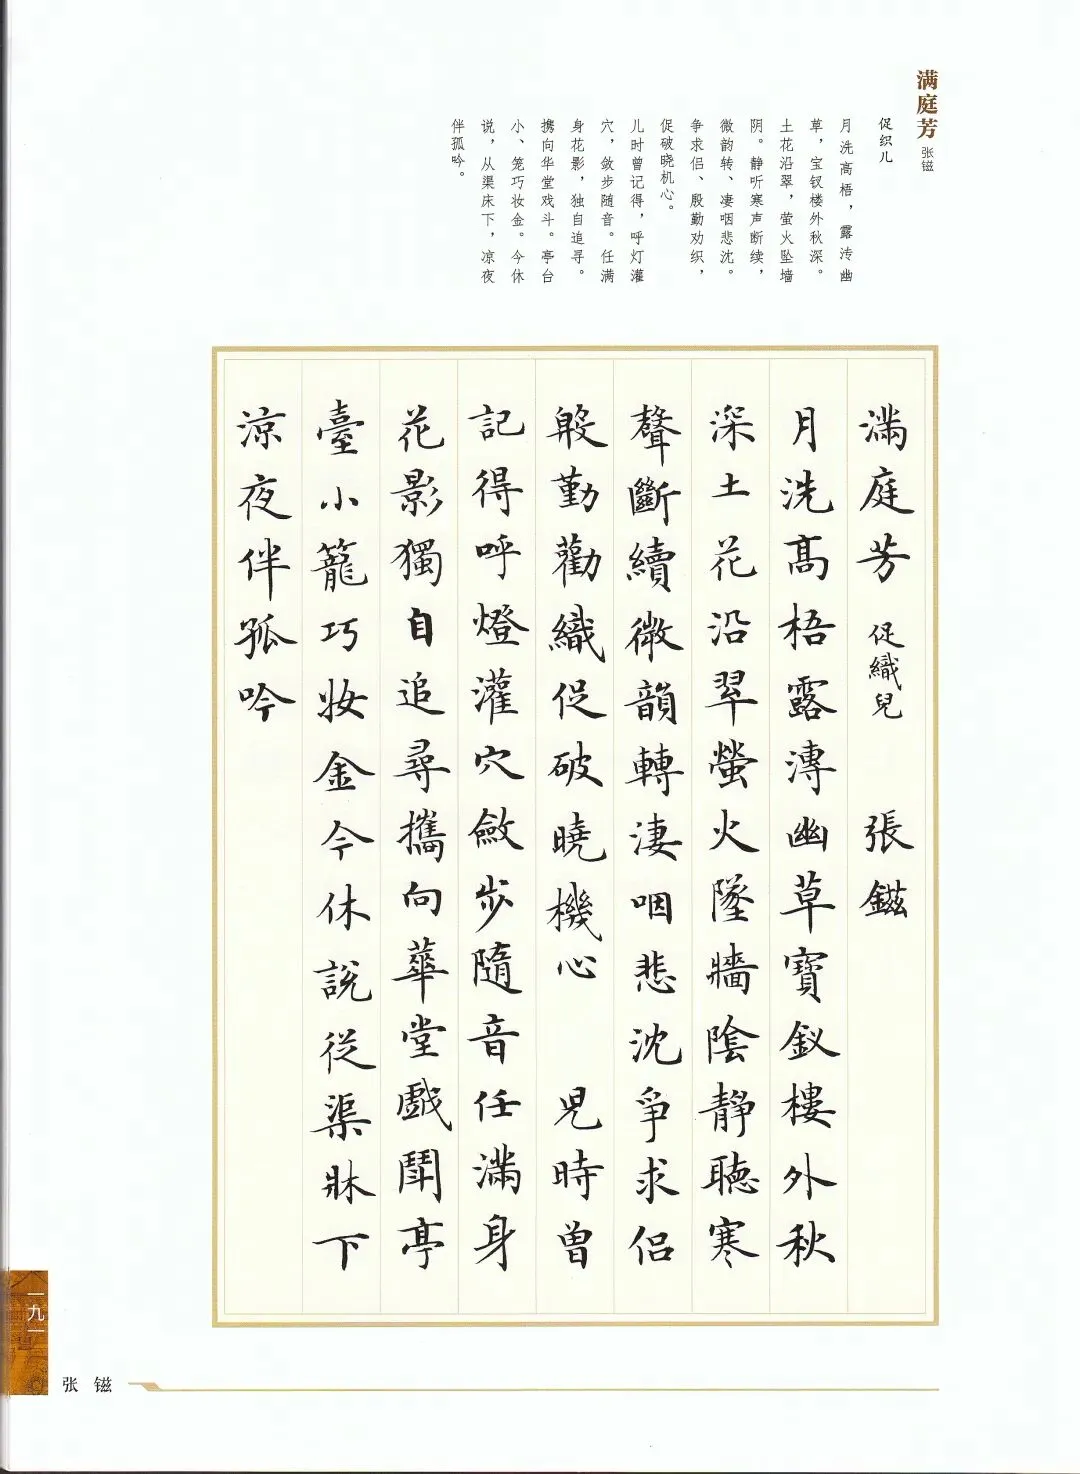 满庭芳 张镃
促织儿
月洗高梧，露洿幽
草，宝钗楼外秋深。
土花沿翠，萤火坠墙
阴。静听寒声断续，
微韵转、凄咽悲沈。
争求侣、殷勤劝织，
促破晓机心。
儿时曾记得，呼灯灌
穴，敛步随音。任满
身花影，独自追寻。
携向华堂戏斗。亭台
小、笼巧妆金。今休
说，从渠床下，凉夜
伴孤吟。
滿庭芳 促織兒 張鎡
月洗高梧露漙幽草寶釵樓外秋
深土花沿翠螢火墜牆陰靜聽寒
聲斷續微韻轉淒咽悲沈爭求侶
殷勤勸織促破曉機心 兒時曾
記得呼燈灌穴斂步隨音任滿身
花影獨自追尋攜向華堂戲鬪亭
臺小籠巧妝金今休說從渠牀下
涼夜伴孤吟
一九一
张镃